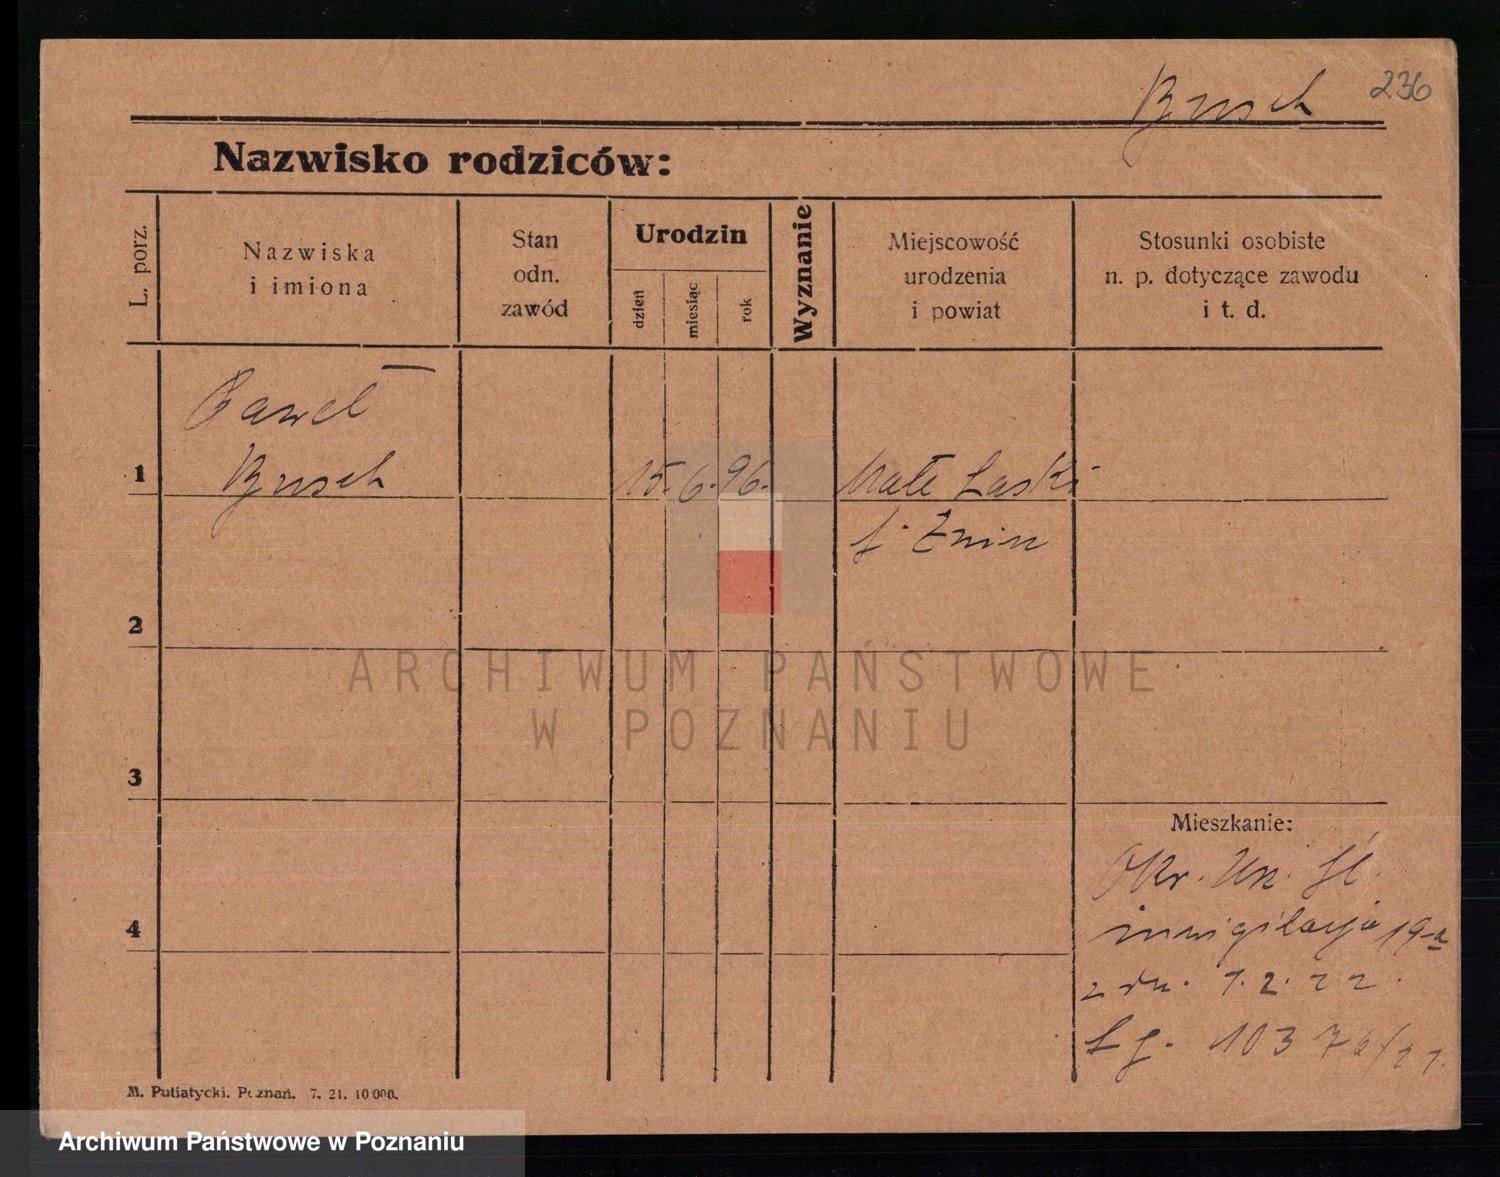 Busch 236
Nazwisko rodziców:
L. porz.
Nazwiska
i imiona
Stan
odn.
zawód
Urodzin
dzień
miesiąc
rok
Wyznanie
Miejscowość
urodzenia
i powiat
Stosunki osobiste
n. p. dotyczące zawodu
i t. d.
Paweł
1 Busch 15. 6. 96. Małe Laski
Żnin
2
3
4
Mieszkanie:
Okr. Un.
inwigilacja 19-a
z dn. 1.2.22.
M. Putiatycki. Poznań. 7. 21. 10 000.
ARCHIWUM PAŃSTWOWE
W POZNANIU
Archiwum Państwowe w Poznaniu